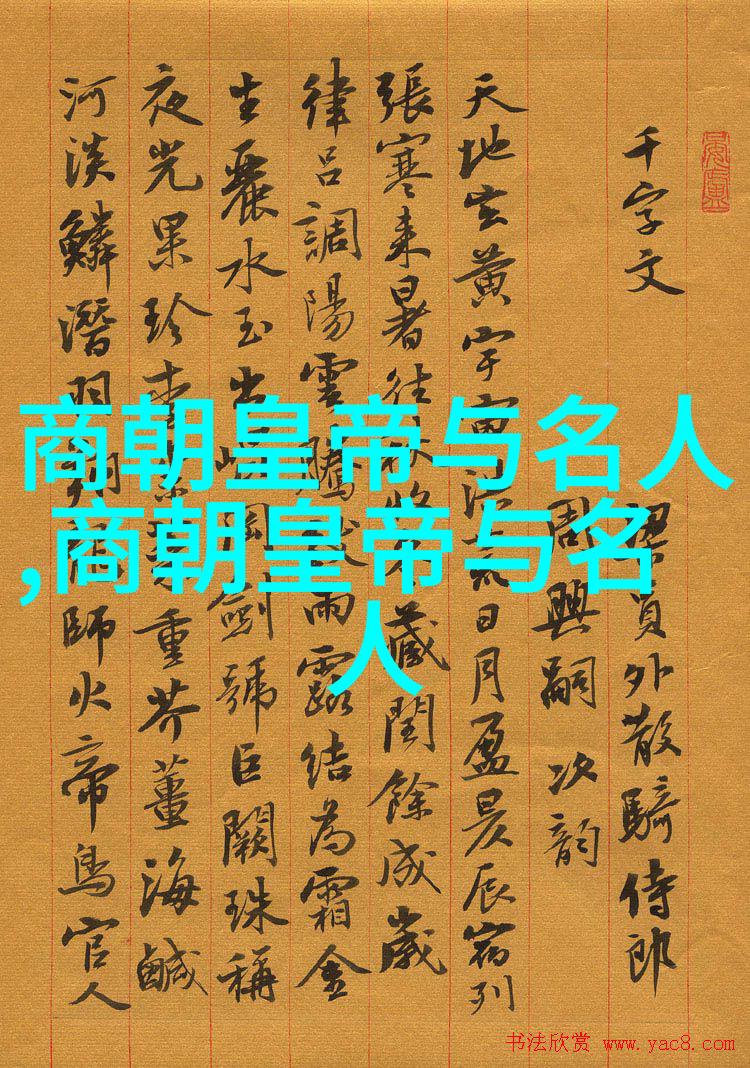 商朝皇帝与名人
,商朝皇帝与名
人
千字文
梁員外散騎侍郎
周興嗣次韵
天地玄黃宇宙洪荒日月盈昃辰宿列
張寒来暑往秋收冬藏閏餘成歲
律呂調陽雲騰致雨露結為霜金
生麗水玉出崐岡劍號巨闕珠稱
夜光果珍李柰菜重芥薑海鹹
河淡鱗潛羽翔龍師火帝鳥官人
书法欣赏 www.yac8.com